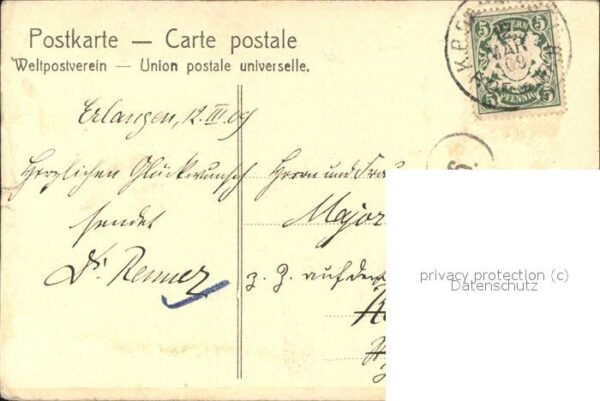 Postkarte — Carte postale
Weltpostverein — Union postale universelle.
BAYERN
5 5
MAR
09
5 PFENNIG 5
Erlangen, 12.III.09
Herzlichen Glückwunsch
sendet
Dr. Renner
Herrn und Frau
Major
z. Z. auf dem
privacy protection (c)
Datenschutz